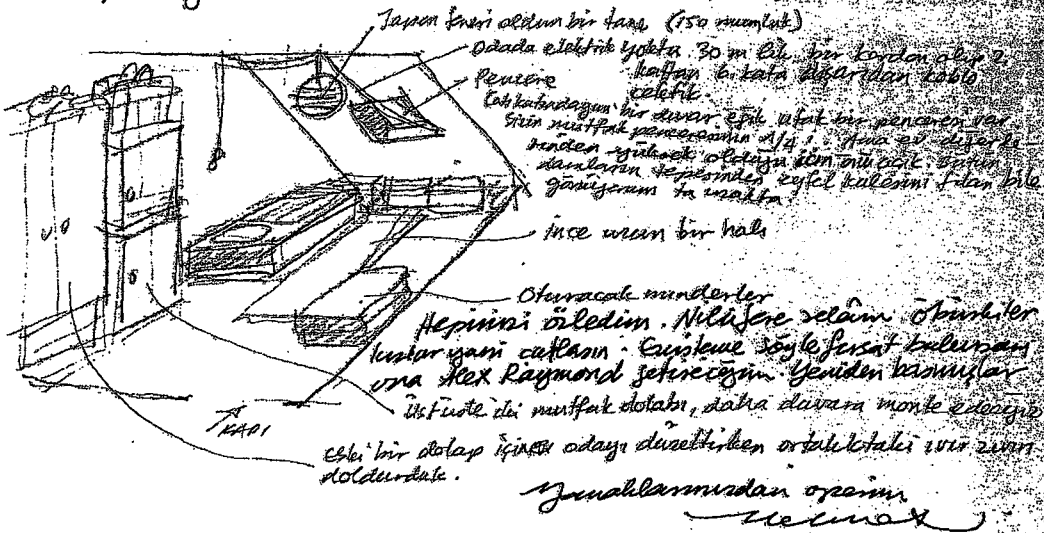 Japon feneri aldım bir tane (150 mumluk)
Odada elektrik yoktu 30 m lik bir kordon alıp 2.
kattan 6. kata dışarıdan kablo
çektik.
Pencere
Çatı katındayım bir duvar eğik ufak bir pencerem var
Sizin mutfak penceresinin 1/4'ü Ama ev diğerle-
rinden yüksek olduğu için önü açık bütün
damların tepesinden eyfel kulesini falan bile
görüyorum ta uzakta
ince uzun bir halı
Oturacak minderler
Hepinizi özledim. Nilüfere selâm öbürkiler
kıskançlar yani çatlasın. söyle fırsat bulursam
ona Alex Raymond getireceğim yeniden basmışlar
Üstüste iki mutfak dolabı, daha duvara monte edeceğiz
KAPI
Eski bir dolap içine odayı düzeltirken ortalıktaki ıvır zıvırı
doldurduk.
Yanaklarınızdan öperim
Mehmet